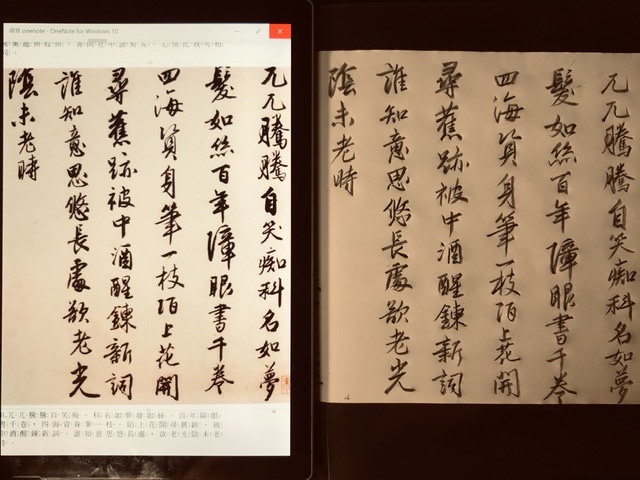 繝蓉 onenote - OneNote for Windows 10
兀兀騰騰自笑痴科名如夢
髮如絲百年障眼書千卷
四海資身筆一枝陌上花開
尋舊跡被中酒醒鍊新詞
誰知意思悠長處欲老光
陰未老時
兀兀騰騰自笑痴，科名如夢髮如絲。百年障眼
書千卷，四海資身筆一枝。陌上花開尋舊跡，被
中酒醒鍊新詞。誰知意思悠長處，欲老光陰未老
時。
兀兀騰騰自笑痴科名如夢
髮如絲百年障眼書千卷
四海資身筆一枝陌上花開
尋蕉跡被中酒醒鍊新詞
誰知意思悠長處欲老光
陰未老時